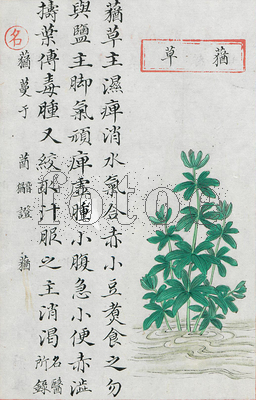 蕕草
蕕草主濕痺消水氣合赤小豆煮食之勿
與鹽主脚氣頑痺虛腫小腹急小便赤澁
擣葉傅毒腫又絞汁服之主消渴名醫所錄
名 蕕蔓于 證 蕕